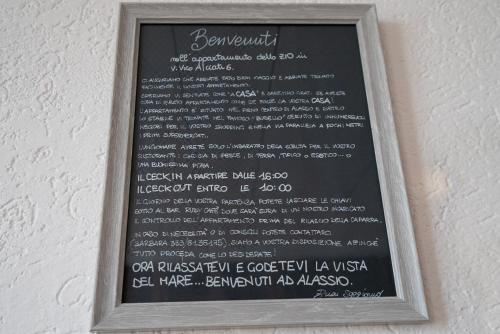 Benvenuti
nell'appartamento dello ZIO in
V. Vico Alciati 6.
CI AUGURIAMO CHE ABBIATE FATTO BUON VIAGGIO E ABBIATE TROVATO
FACILMENTE IL NOSTRO APPARTAMENTO.
SPERIAMO VI SENTIATE COME "A CASA" E SAREMMO GRATI SE AVRETE
CURA DI QUESTO APPARTAMENTO COME SE FOSSE LA VOSTRA CASA!
L'APPARTAMENTO È SITUATO NEL PIENO CENTRO DI ALASSIO E DIETRO
LO STABILE VI TROVATE NEL FAMOSO "BUDELLO" DOTATO DI INNUMEREVOLI
NEGOZI PER IL VOSTRO SHOPPING E NELLA VIA PARALLELA A POCHI METRI
I PRIMI SUPERMERCATI.
LUNGOMARE AVRETE SOLO L'IMBARAZZO DELLA SCELTA PER IL VOSTRO
RISTORANTE: CHE SIA DI PESCE, DI TERRA, TIPICO O ESOTICO... O
UNA BUONISSIMA PIZZA.
IL CECK IN A PARTIRE DALLE 16:00
IL CECK OUT ENTRO LE 10:00
IL GIORNO DELLA VOSTRA PARTENZA POTETE LASCIARE LE CHIAVI
SOTTO AL BAR RUDY CAFÈ DOVE SARÀ CURA DI UN NOSTRO INCARICATO
IL CONTROLLO DELL'APPARTAMENTO PRIMA DEL RILASCIO DELLA CAPARRA.
IN CASO DI NECESSITÀ O DI CONSIGLI POTETE CONTATTARE
(BARBARA SIAMO A VOSTRA DISPOSIZIONE AFFINCHÈ
TUTTO PROCEDA COME LO DESIDERATE!
ORA RILASSATEVI E GODETEVI LA VISTA
DEL MARE... BENVENUTI AD ALASSIO.